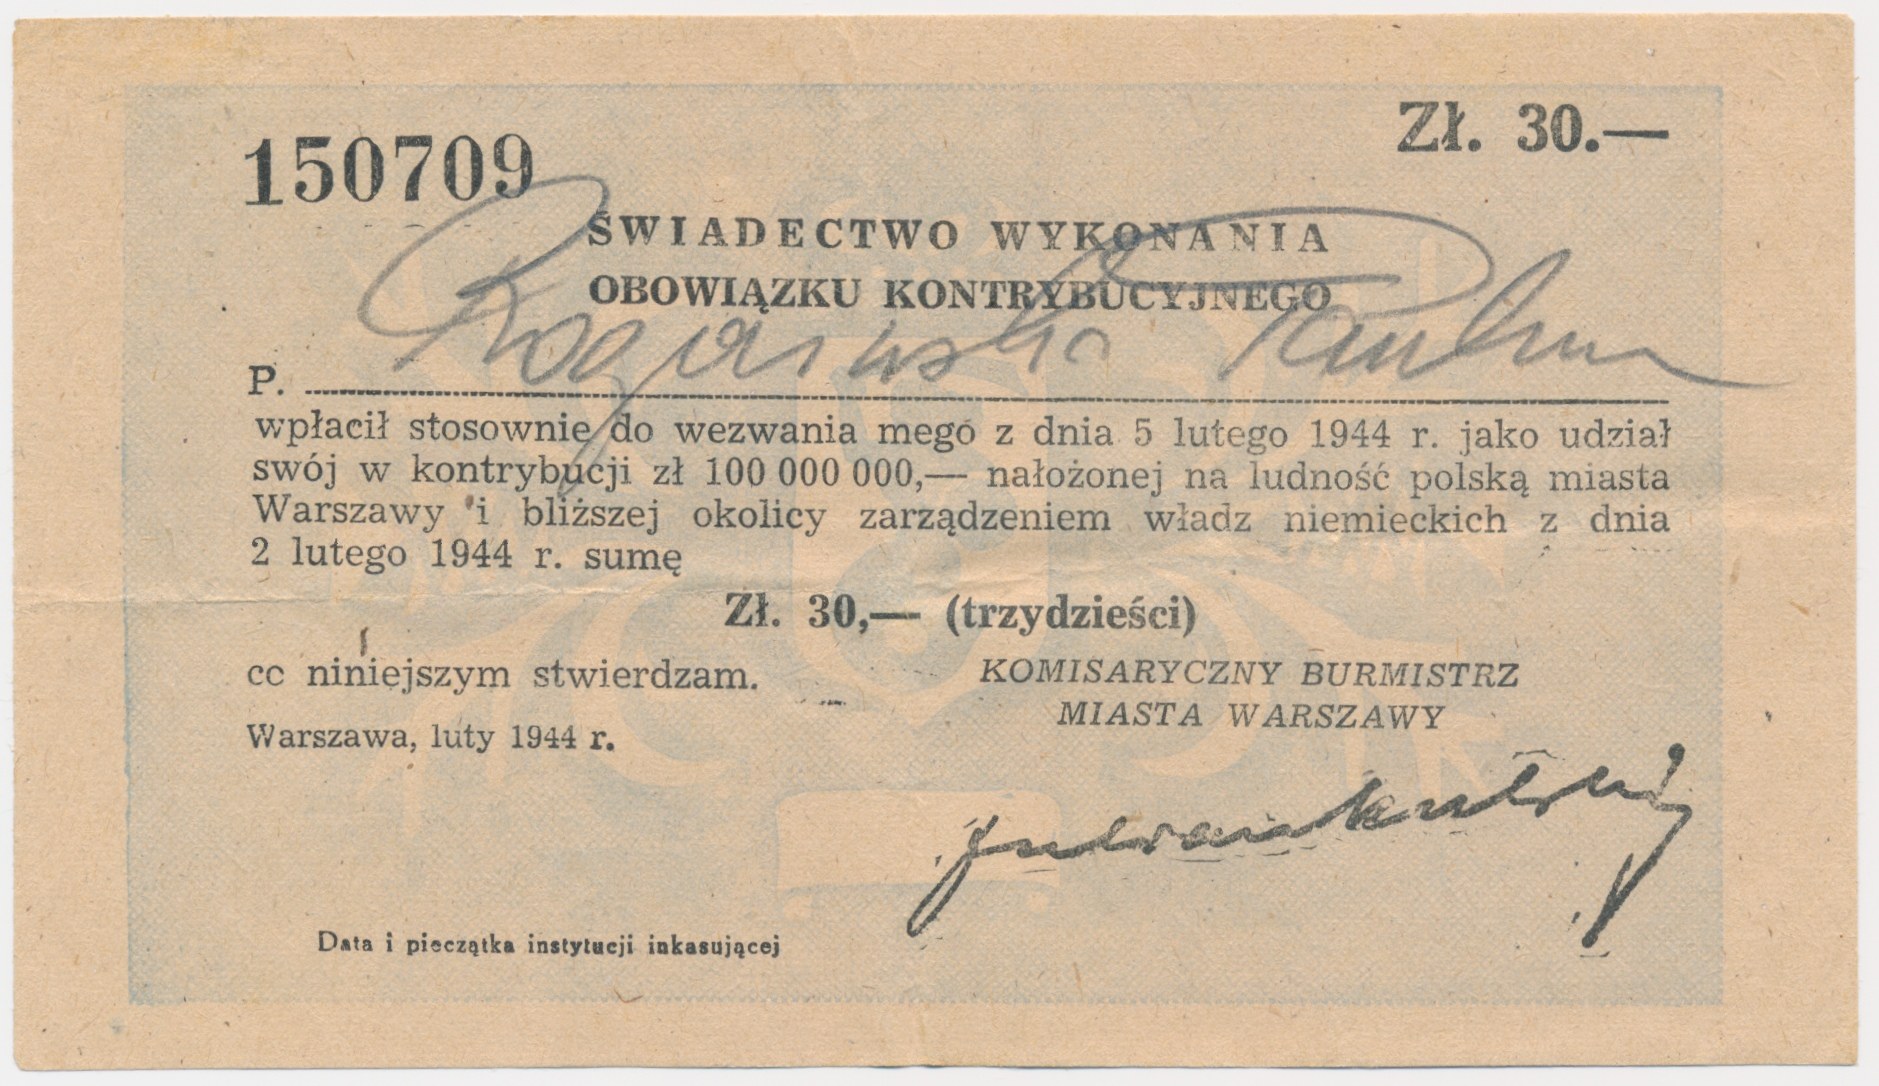 150709
Zł. 30.—
ŚWIADECTWO WYKONANIA
OBOWIĄZKU KONTRYBUCYJNEGO
P.
wpłacił stosownie do wezwania mego z dnia 5 lutego 1944 r. jako udział
swój w kontrybucji zł 100 000 000,— nałożonej na ludność polską miasta
Warszawy i bliższej okolicy zarządzeniem władz niemieckich z dnia
2 lutego 1944 r. sumę
Zł. 30,— (trzydzieści)
cc niniejszym stwierdzam.
KOMISARYCZNY BURMISTRZ
MIASTA WARSZAWY
Warszawa, luty 1944 r.
Data i pieczątka instytucji inkasującej